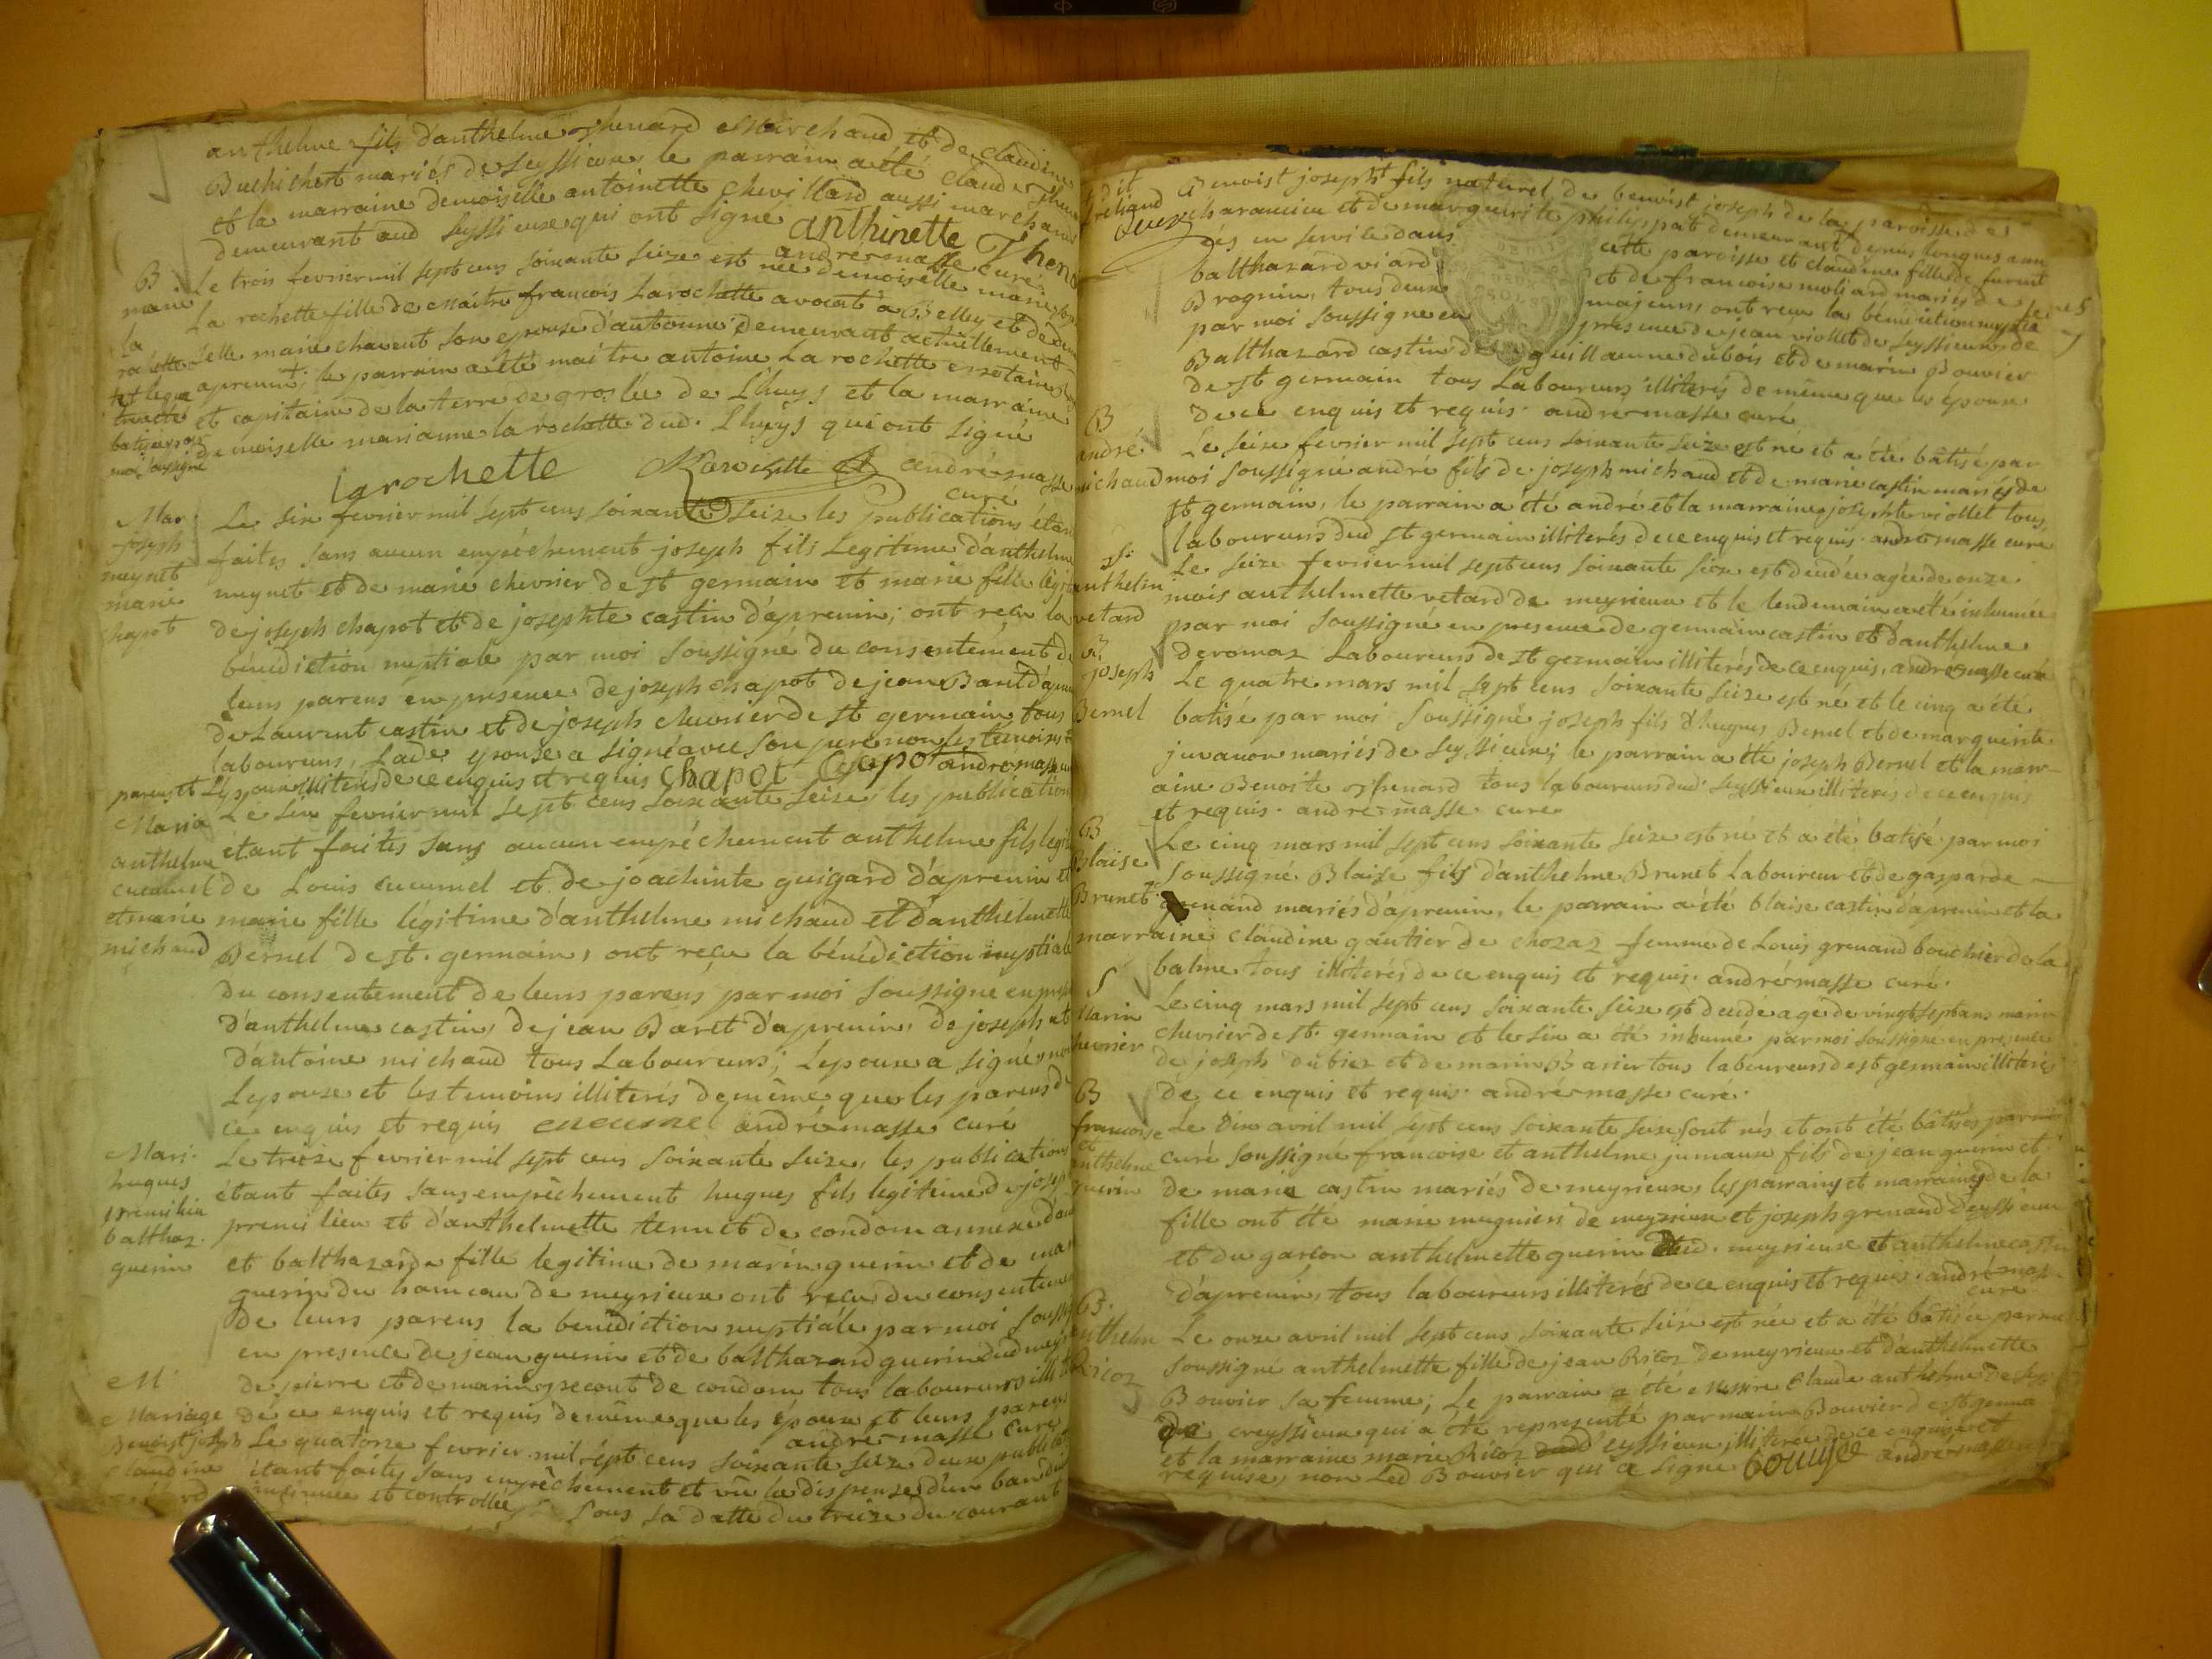 anthelme fils d'anthelme Thenard marchand et de claudine
mariés de Seyssieux, le parrain a été claude
et la marraine demoiselle antoinette chevillard aussi marchand
demeurant aud Seyssieux qui ont signé anthinette Then
andré masse curé
B
marie
la
rochette
Le trois fevrier mil sept cens soixante seize est née demoiselle marie
La rochette fille de maitre françois Larochette avocat a Belley et de
marie chavent son epouse demeurant actuellement
aprenin; le parrain a été maître antoine La rochette
et capitaine de la terre de groslée de Lhuys et la marraine
demoiselle marianne la rochette dud. Lhuys qui ont signé
batisée par
moi soussigné
larochette Larochette andré masse
curé
Mar
joseph
meynet
marie
chapot
Le six fevrier mil sept cens soixante seize les publications étan
faites sans aucun empêchement joseph fils Legitime d'anthelme
meynet et de marie chevrier de St germain et marie fille
de joseph chapot et de josephte castin d'aprenin; ont reçu la
bénédiction nuptiale par moi soussigné du consentement de
leurs parens en presence de joseph chapot de jean Baret
de Laurent castin et de joseph chevrier de St germain tous
laboureurs, Lade epouse a signé avec son pere non les temoins
parens et L'epoux illiterés de ce enquis et requis chapot Chapot andré masse
Maria
anthelme
cucumel
et marie
michaud
Le six fevrier mil sept cens soixante seize, les publication
étant faites sans aucun empêchement anthelme fils legit
de Louis cucumel et de joachinte guigard d'aprenin et
marie fille légitime d'anthelme michaud et d'anthelmette
Bernel de St. germain, ont reçu la bénédiction nuptiale
du consentement de leurs parens par moi soussigné en
d'anthelme castin, de jean Baret d'aprenin, de joseph et
d'antoine michaud tous Laboureurs; L'epoux a signé non
L'epouse et les temoins illiterés de même que les parens de
ce enquis et requis cucumel andré masse curé
Mari.
hugues
premilieu
balthaz.
guerin
Le treize fevrier mil sept cens soixante seize, les publications
étant faites sans empêchement hugues fils legitime de jose
premilieu et d'anthelmette tenuet de condom annexe
et balthazarde fille legitime de marin guerin et de
guerin du hameau de meyrieux ont reçu du consentem
de leurs parens la benediction nuptiale par moi souss
en presence de jean guerin et de balthazard guerin dud
de pierre et de marin pecout de condom tous laboureurs
de ce enquis et requis de même que les époux et leurs parens
andré masse curé
M
Mariage
Benoist joseph
claudine
Le quatorze fevrier mil sept cens soixante seize deux publi
étant faites sans empêchement et vû la dispense d'un ban
et controllée sous la datte du treize du courant
Benoist joseph fils naturel de benoist joseph de la paroisse de
charancin et de marguerite philippat demeurant depuis longues ann
ées en service dans cette paroisse et claudine fille de furent
balthazard viard et de francoise moliard mariés de
Brognin, tous deux majeurs, ont reçu la bénédiction nuptiale
par moi soussigné en presence de jean viollet de Seyssieux, de
Balthazard castin de guillaume dubois et de marin Bouvier
de St germain tous Laboureurs illiterés de même que les époux
de ce enquis et requis. andré masse curé
B
andré
michaud
Le seize fevrier mil sept cens soixante seize est né et a été bâtisé par
moi soussigné andré fils de joseph michaud et de marie castin mariés de
St germain, le parrain a été andré et la marraine josephte viollet tous
laboureurs dud St germain illiterés de ce enquis et requis. andré masse curé
anthelm
vetard
Le seize fevrier mil sept cens soixante seize est decedée agée de onze
mois anthelmette vetard de meyrieux et le lendemain a été inhumée
par moi soussigné en presence de germain castin et d'anthelme
deromaz Laboureurs de St germain illiterés de ce enquis. andré masse curé
joseph
Bernel
Le quatre mars mil sept cens soixante seize est né et le cinq a été
batisé par moi soussigné joseph fils d'hugues Bernel et de marguerite
juvanon mariés de Seyssieux; le parrain a été joseph Bernel et la marr-
aine Benoite Thenard tous laboureurs dud Seyssieux illiterés de ce enquis
et requis. andré masse curé
B
Blaise
Brunet
Le cinq mars mil sept cens soixante seize est né et a été batisé par moi
soussigné Blaise fils d'anthelme Brunet Laboureur et de gasparde
grenand mariés d'aprenin, le parrain a été blaise castin d'aprenin et la
marraine claudine gautier de chozaz femme de Louis grenand bouchier de la
balme tous illiterés de ce enquis et requis. andré masse curé.
S
Marin
chevrier
Le cinq mars mil sept cens soixante seize est decédé agé de vingt sept ans marin
chevrier de St. germain et le six a été inhumé par moi soussigné en presence
de joseph dubiez et de marin Barier tous laboureurs de St germain illiterés
de ce enquis et requis. andré masse curé.
B
francoise
et
anthelme
guerin
Le dix avril mil sept cens soixante seize sont nés et ont été bâtisés par moi
curé soussigné francoise et anthelme jumaux fils de jean guerin et
de marie castin mariés de meyrieux, les parrains et marraines de la
fille ont été marie mugnier de meyrieux et joseph grenand
et du garcon anthelmette guerin dud. meyrieux et anthelme castin
d'aprenin, tous laboureurs illiterés de ce enquis et requis. andré masse
curé
B.
anthelm
Ricoz
Le onze avril mil sept cens soixante seize est née et a été bâtisée par moi
soussigné anthelmette fille de jean Ricoz de meyrieux et d'anthelmette
Bouvier sa femme; Le parrain a été messire Claude anthelme
de creyssieux qui a été representé par marin Bouvier de St germa
et la marraine marie Ricoz Seyssieux illiterée de ce enquise et
requise, non Led Bouvier qui a signé bouvie andré masse